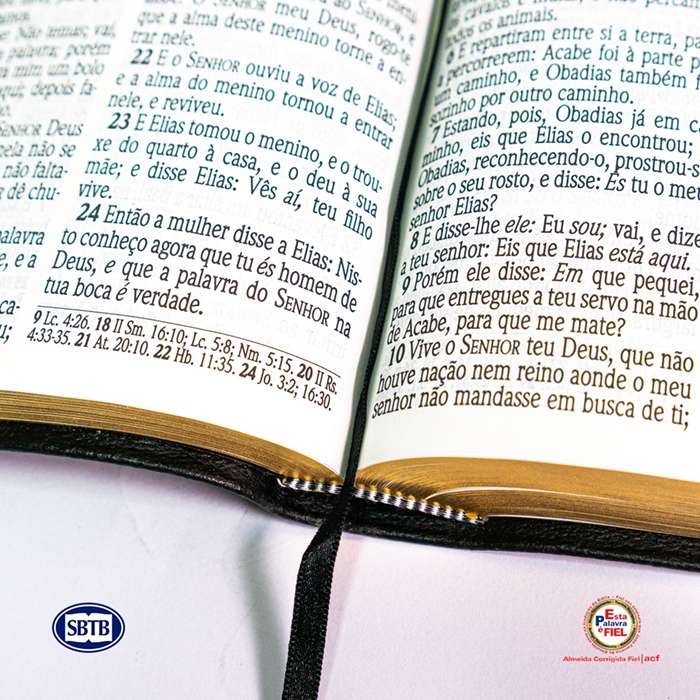 Não temas; vai,
palavra; porém
mim um bolo
depois fa-
SENHOR Deus
nela não se
não falta-
dê chu-
palavra
e, e a
ca-
u;
SENHOR meu Deus, rogo-te
que a alma deste menino torne a en-
trar nele.
22 E o SENHOR ouviu a voz de Elias;
e a alma do menino tornou a entrar
nele, e reviveu.
23 E Elias tomou o menino, e o trou-
xe do quarto à casa, e o deu à sua
mãe; e disse Elias: Vês aí, teu filho
vive.
24 Então a mulher disse a Elias: Nis-
to conheço agora que tu és homem de
Deus, e que a palavra do SENHOR na
tua boca é verdade.
9 Lc. 4:26. 18 II Sm. 16:10; Lc. 5:8; Nm. 5:15. 20 II Rs.
4:33-35. 21 At. 20:10. 22 Hb. 11:35. 24 Jo. 3:2; 16:30.
todos os animais.
6 E repartiram entre si a terra, pa
a percorrerem: Acabe foi à parte p
um caminho, e Obadias também f
sozinho por outro caminho.
7 Estando, pois, Obadias já em c
minho, eis que Elias o encontrou;
Obadias, reconhecendo-o, prostrou-s
sobre o seu rosto, e disse: És tu o meu
senhor Elias?
8 E disse-lhe ele: Eu sou; vai, e dize
a teu senhor: Eis que Elias está aqui.
9 Porém ele disse: Em que pequei,
para que entregues a teu servo na mão
de Acabe, para que me mate?
10 Vive o SENHOR teu Deus, que não
houve nação nem reino aonde o meu
senhor não mandasse em busca de ti;
SBTB
Esta
Palavra
é FIEL
Almeida Corrigida Fiel | acf